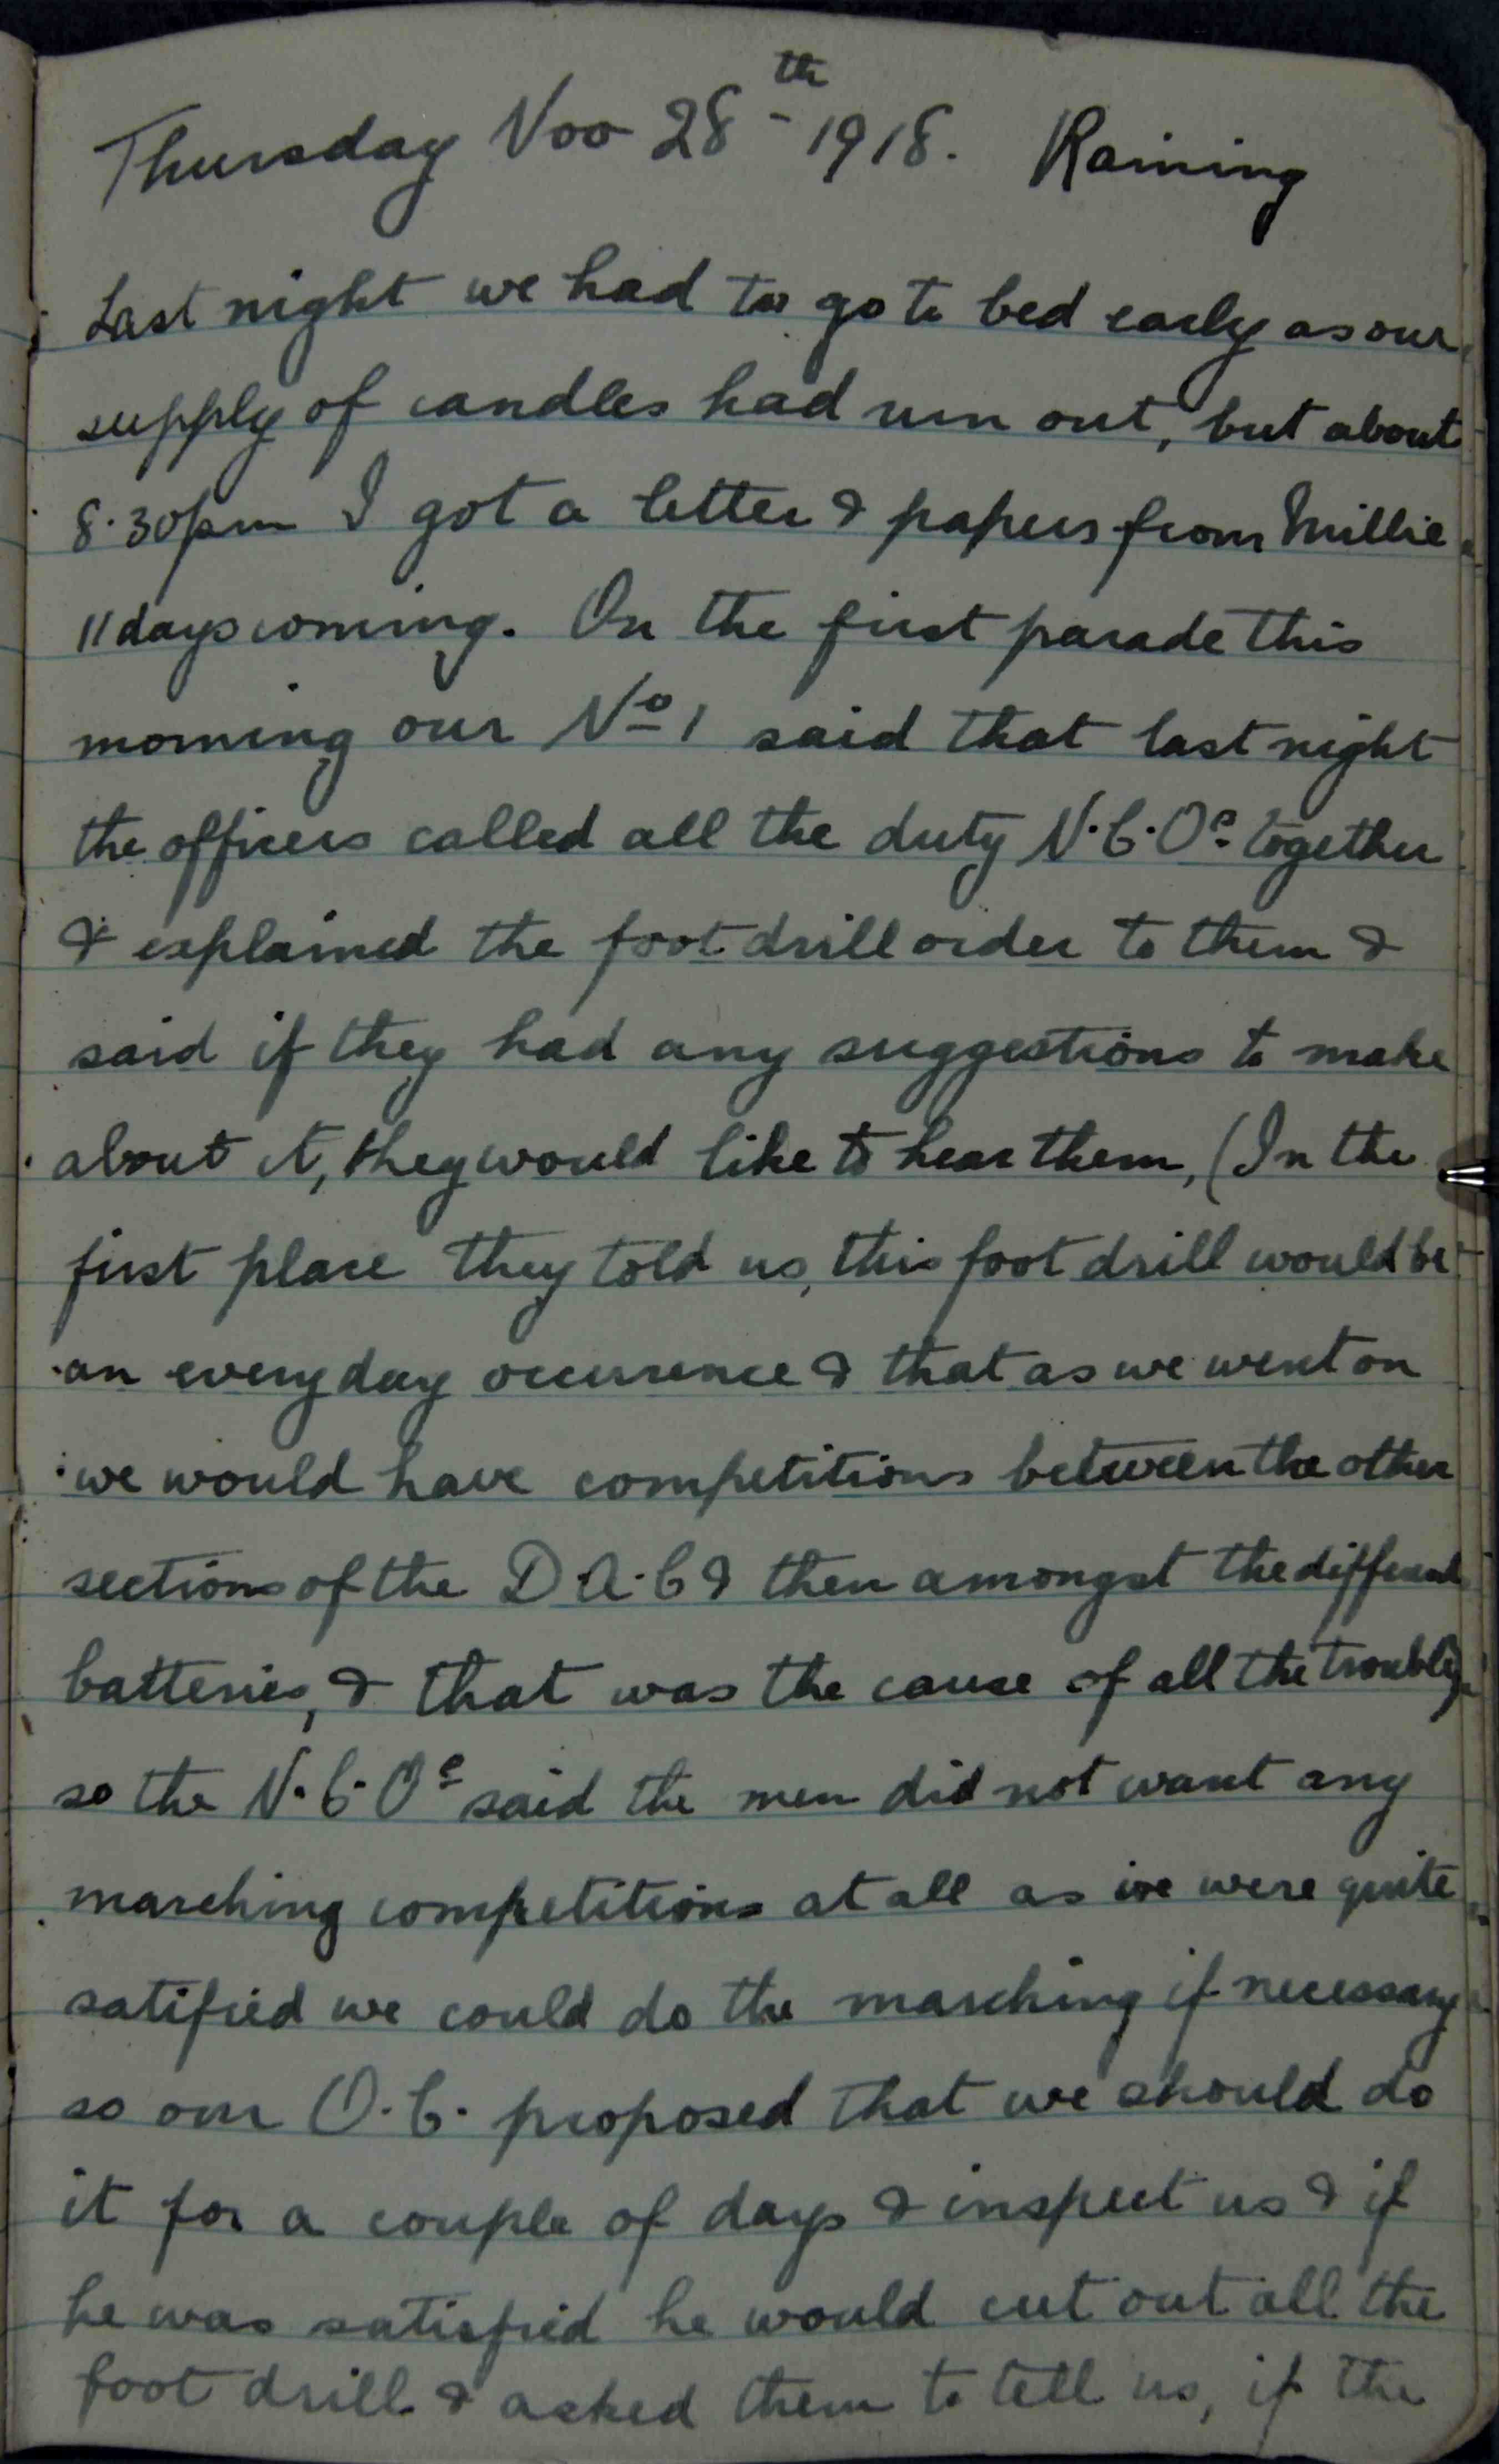 Thursday Nov 28th 1918. Raining
Last night we had to go to bed early as our
supply of candles had run out, but about
8.30pm I got a letter & papers from Millie
11 days coming. On the first parade this
morning our No 1 said that last night
the officers called all the duty N.C.Os together
& explained the foot drill order to them &
said if they had any suggestions to make
about it, they would like to hear them, (In the
first place they told us, this foot drill would be
an every day occurrence & that as we went on
we would have competitions between the other
sections of the D.A.C & then amongst the different
batteries, & that was the cause of all the trouble)
so the N.C.Os said the men did not want any
marching competitions at all as we were quite
satified we could do the marching if necessary
so our O.C. proposed that we should do
it for a couple of days & inspect us & if
he was satisfied he would cut out all the
foot drill & asked them to tell us, if the